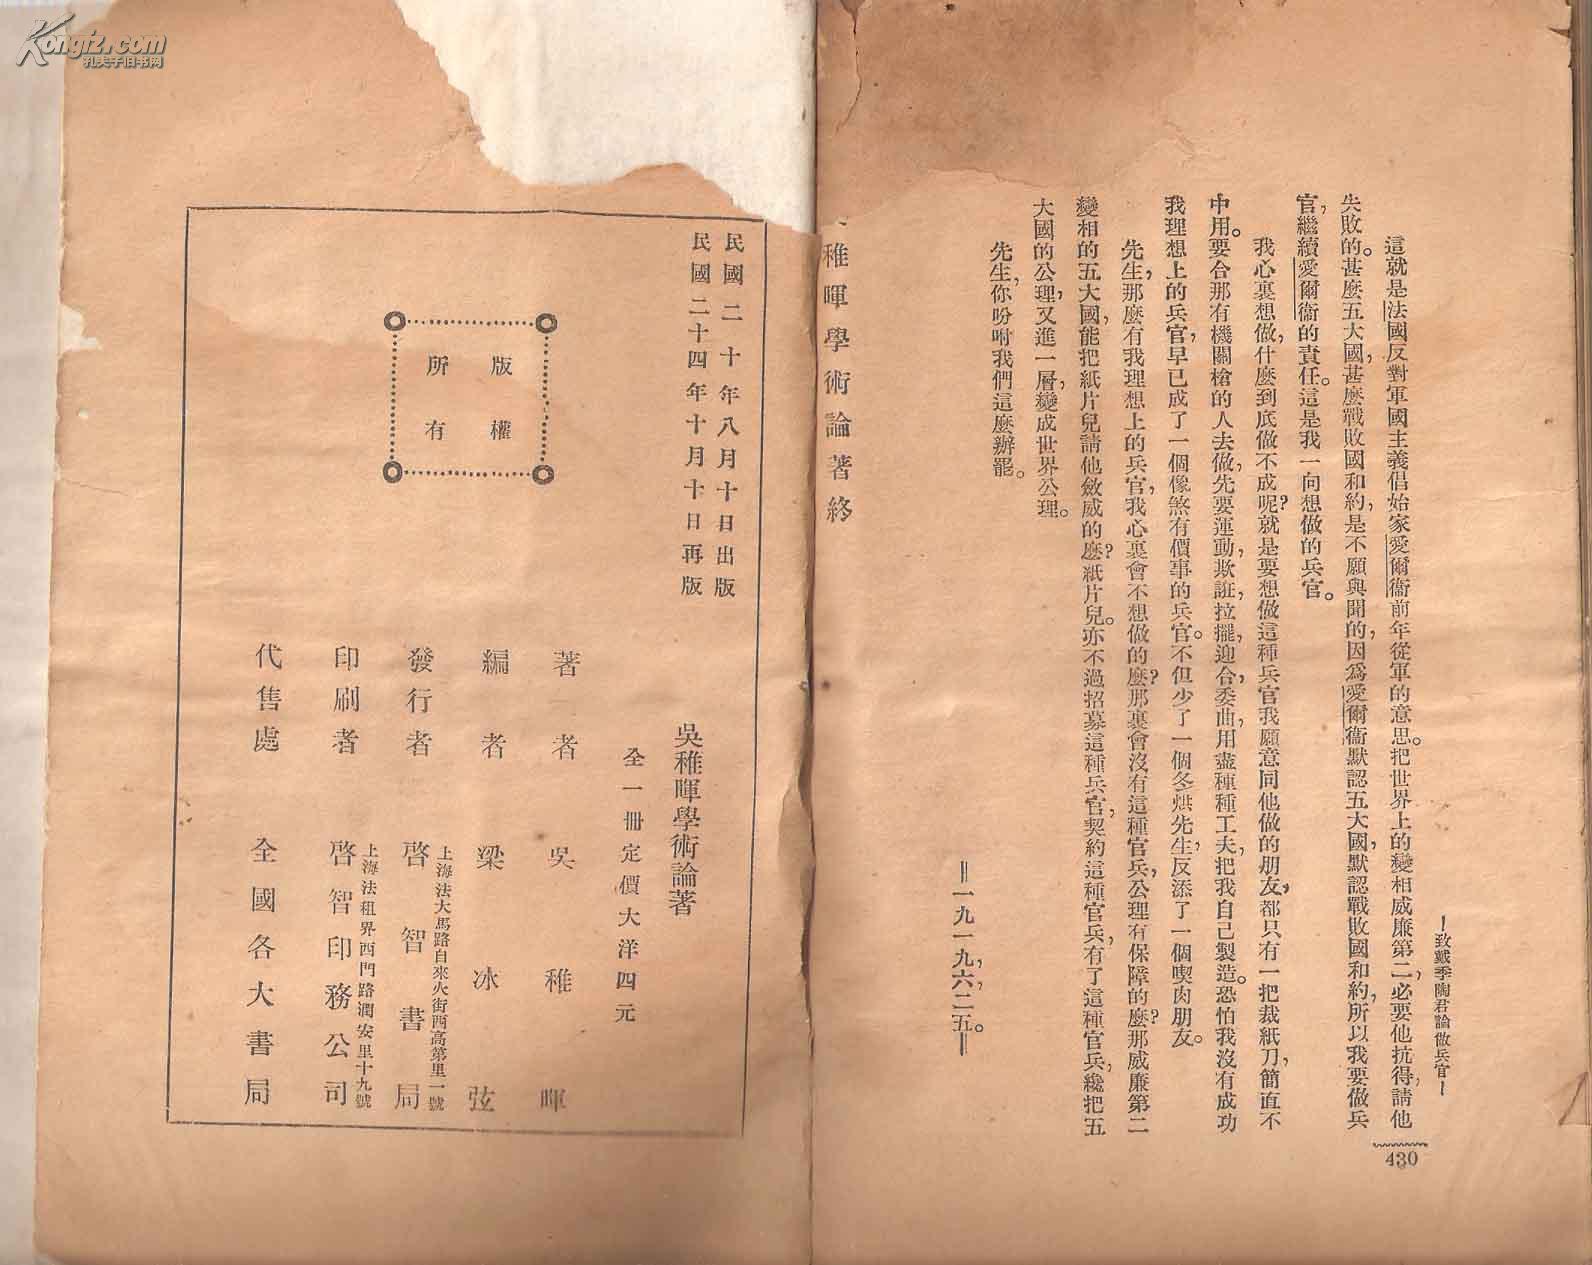 Kongfz.com
孔夫子旧书网
—致戴季陶君論做兵官—
430
這就是法國反對軍國主義倡始家愛爾衞前年從軍的意思。把世界上的變相威廉第二，必要他抗得，請他
失敗的。甚麽五大國，甚麽戰敗國和約，是不願與聞的，因爲愛爾衞默認五大國，默認戰敗國和約，所以我要做兵
官，繼續愛爾衞的責任。這是我一向想做的兵官。
我心裏想做，什麽到底做不成呢？就是要想做這種兵官我願意同他做的朋友，都只有一把裁紙刀，簡直不
中用。要合那有機關槍的人去做，先要運動，欺誑，拉攏，迎合，委曲，用盡種種工夫，把我自己製造。恐怕我沒有成功
我理想上的兵官，早已成了一個像煞有價事的兵官。不但少了一個冬烘先生，反添了一個喫肉朋友。
先生，那麽有我理想上的兵官，我心裏會不想做的麽？那裏會沒有這種官兵，公理有保障的麽？那威廉第二
變相的五大國，能把紙片兒請他斂威的麽？紙片兒。亦不過招募這種兵官，契約這種官兵，有了這種官兵，纔把五
大國的公理，又進一層，變成世界公理。
先生，你吩咐我們這麽辦罷。
＝一九一九，六，二五。＝
稚暉學術論著終
民國二十年八月十日出版
民國二十四年十月十日再版
版權
所有
吳稚暉學術論著
全一冊定價大洋四元
著者 吳稚暉
編者 梁冰弦
上海法大馬路自來火街西高第里一號
發行者 啓智書局
上海法租界西門路潤安里十九號
印刷者 啓智印務公司
代售處 全國各大書局